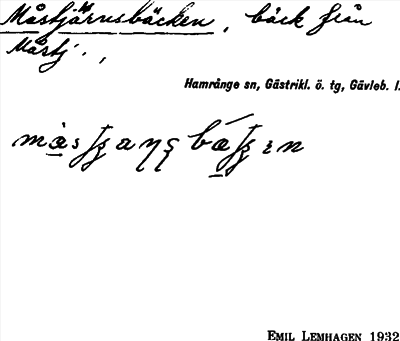 Måstjärnsbäcken, bäck från
Måstj.,
Hamrånge sn, Gästrikl. ö. tg, Gävleb. l.
EMIL LEMHAGEN 1932